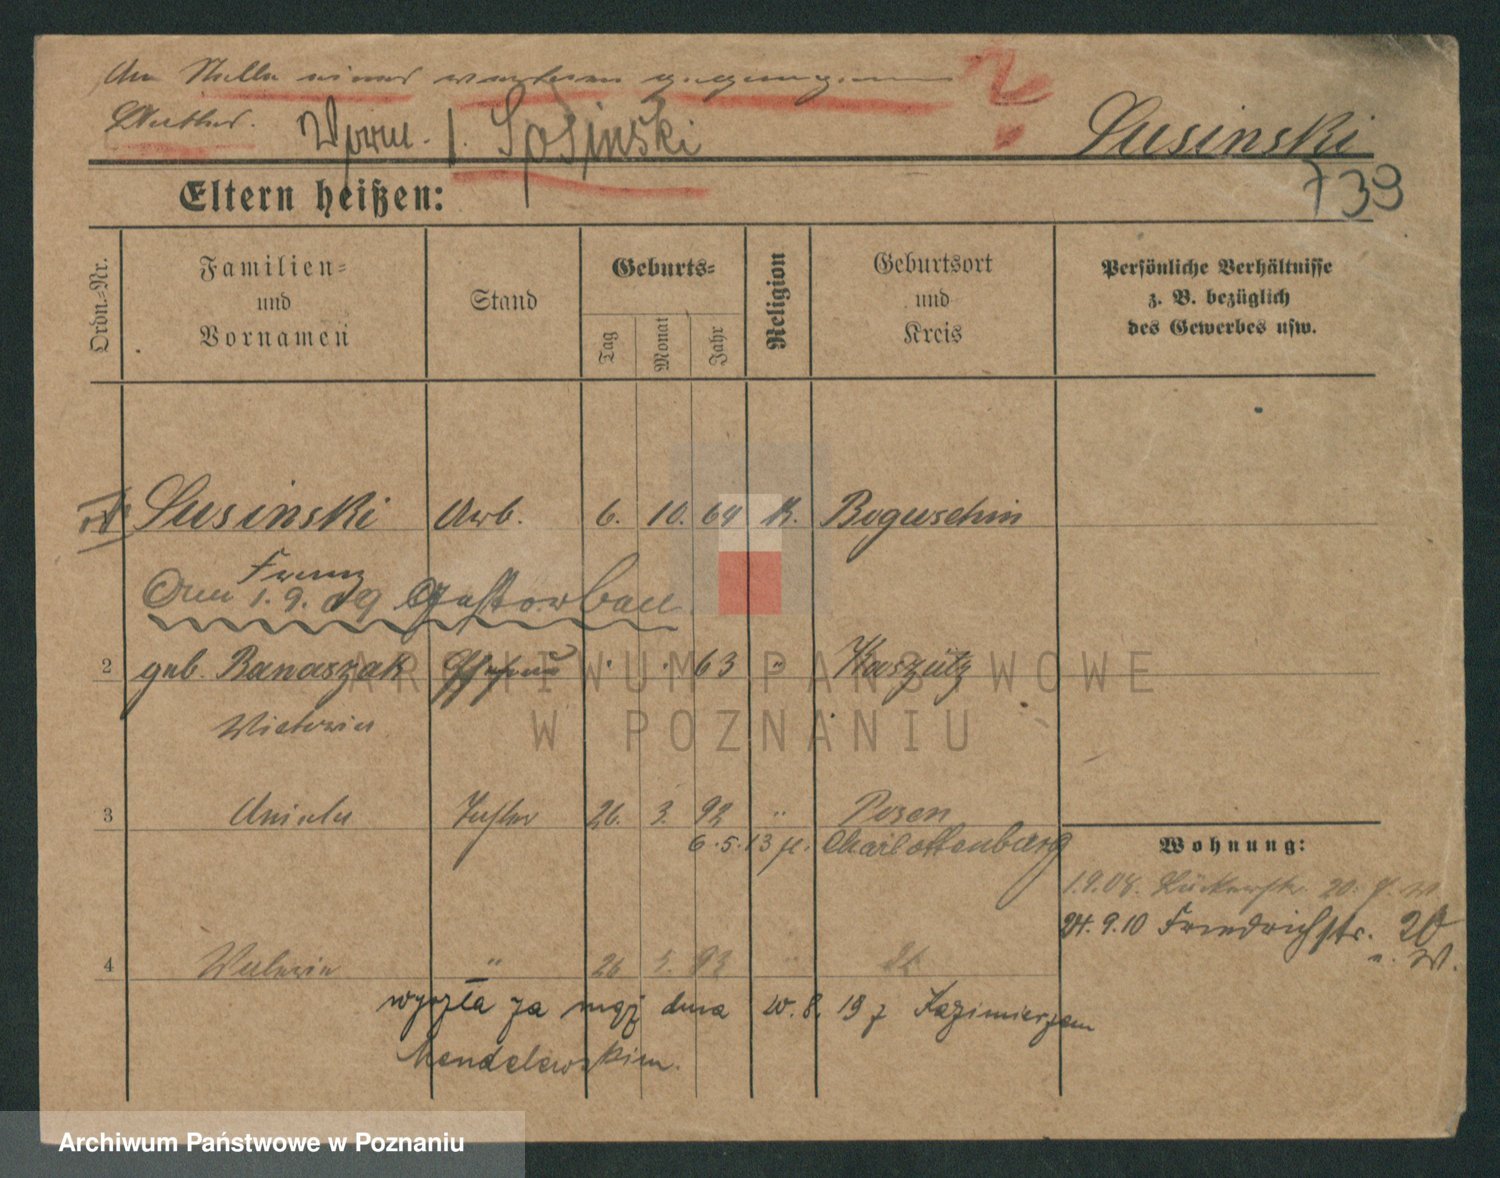 An Stelle einer verloren gegangenen
Susinski
739
Eltern heißen:
Ordn.=Nr.
Familien=
und
Vornamen
Stand
Geburts=
Tag
Monat
Jahr
Religion
Geburtsort
und
Kreis
Persönliche Verhältnisse
z. B. bezüglich
des Gewerbes usw.
Susinski Arb. 6. 10. 64 K. Boguschin
Franz
Am 1.9.09 Gestorben
2 geb. Banaszak Ehefrau 63 " Kaszütz
Victoria
3 Aniela Tochter 26. 3. 92 " Posen
6.5.13 Charlottenburg
Wohnung:
1.9.08. 20.
24.9.10 Friedrichstr. 20
4 Valerie " 26 93 "
wyszła za mąż dnia 8. 19 z Kazimierzem
Mendelewskim.
ARCHIWUM PAŃSTWOWE
W POZNANIU
Archiwum Państwowe w Poznaniu